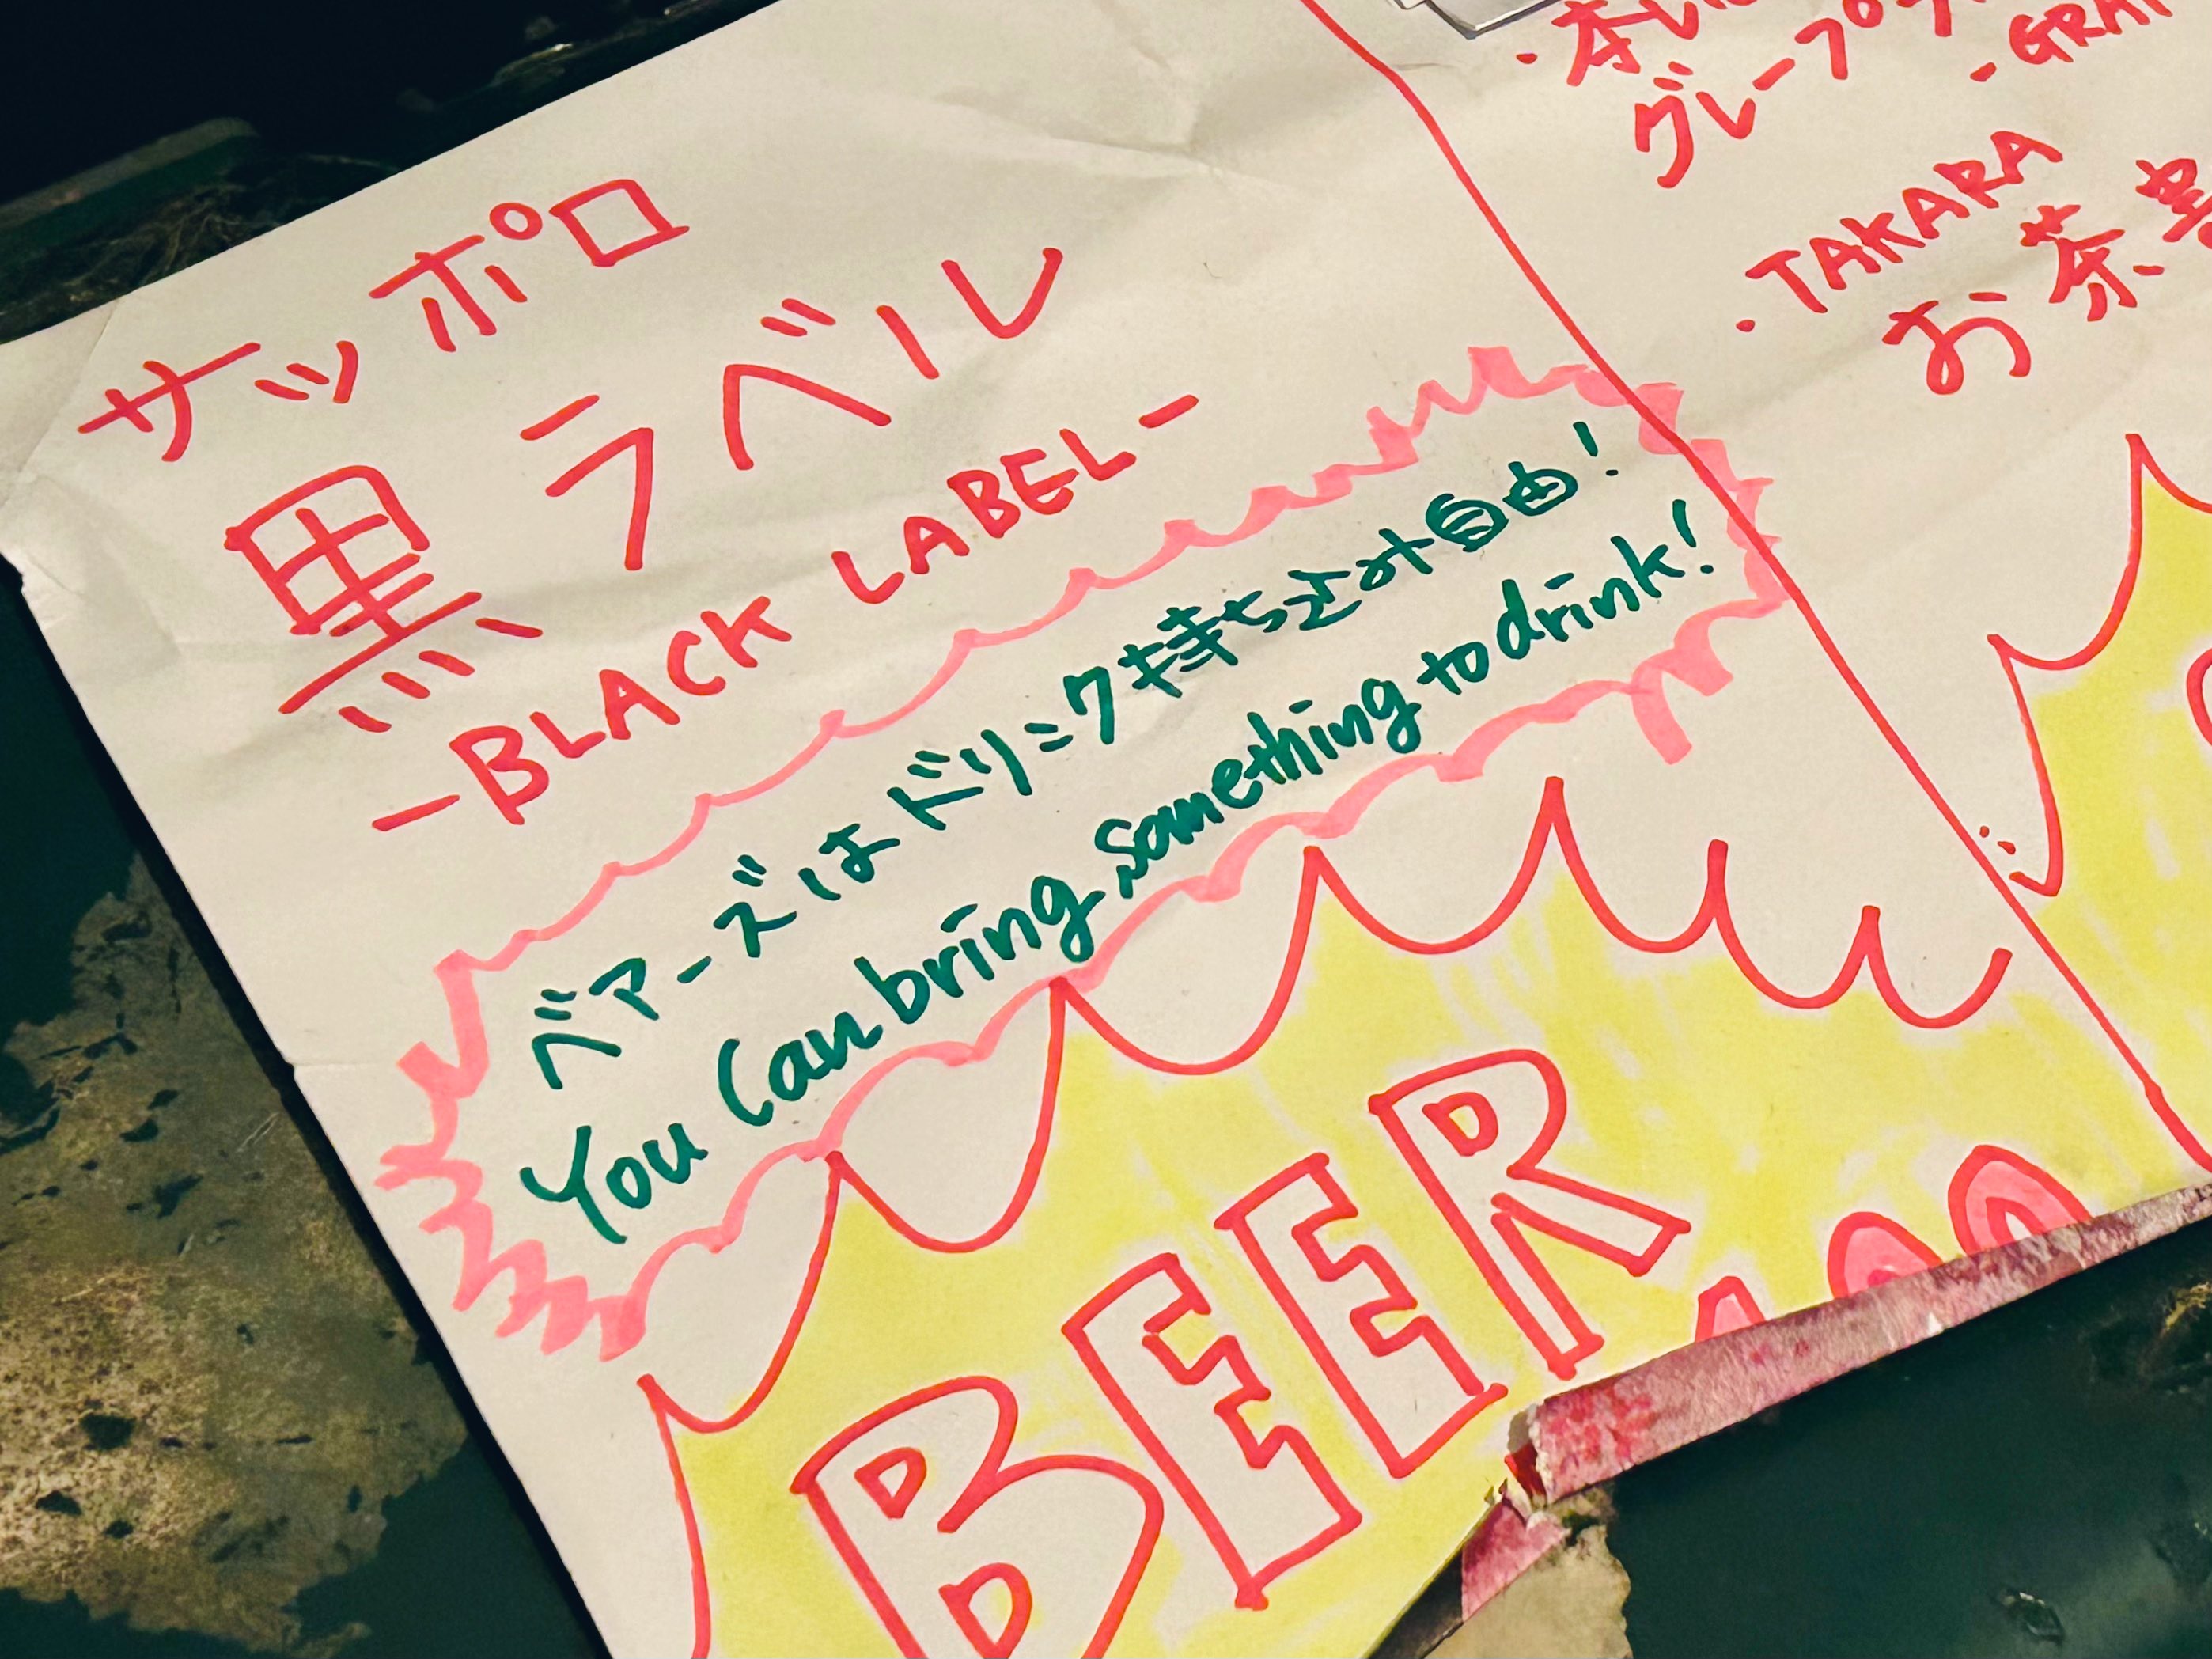 サッポロ
黒ラベル
-BLACK LABEL-
ベアーズはドリンク持ち込み自由!
You Can bring something to drink!
BEER
・TAKARA
お茶